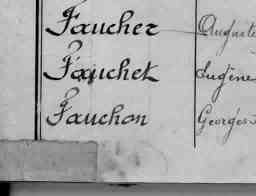 Faucher Auguste
Fauchet Eugène
Fauchon Georges